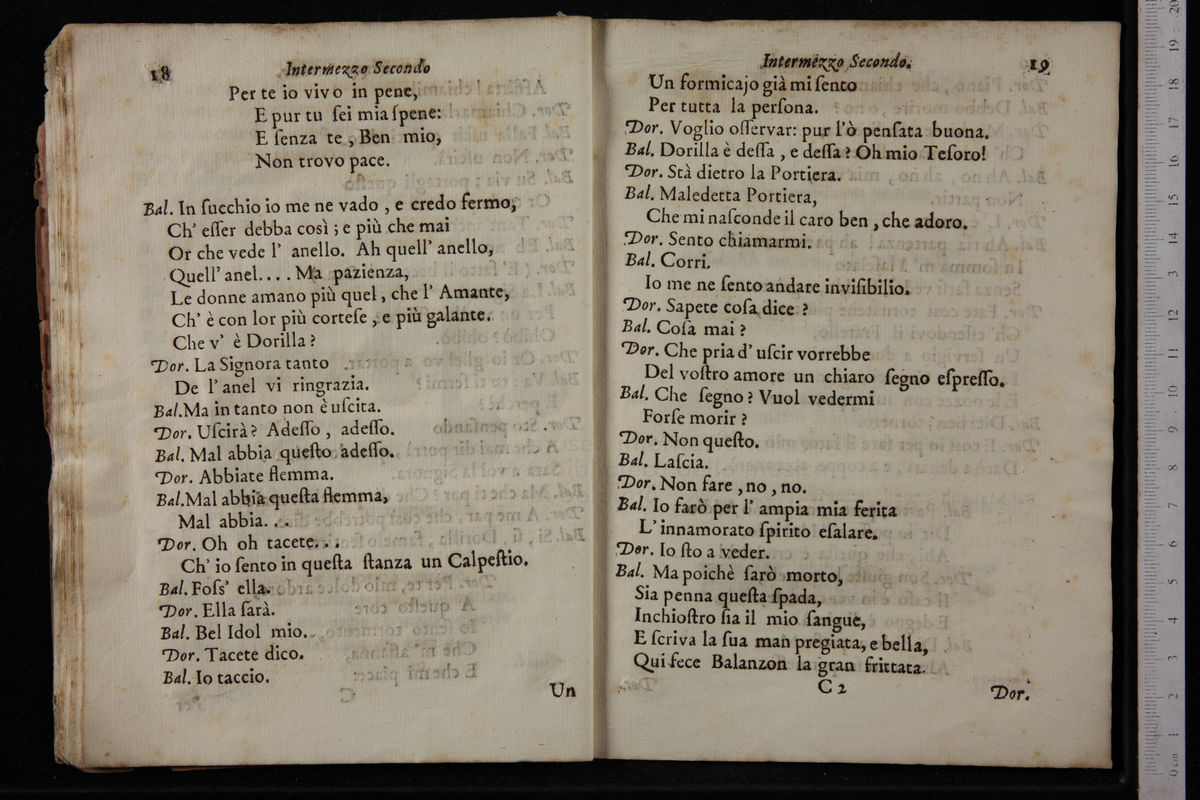 18 Intermezzo Secondo
Per te io vivo in pene,
E pur tu ſei mia ſpene:
E ſenza te, Ben mio,
Non trovo pace.
Bal. In ſucchio io me ne vado, e credo fermo,
Ch' eſſer debba così; e più che mai
Or che vede l' anello. Ah quell' anello,
Quell' anel.... Ma pazienza,
Le donne amano più quel, che l' Amante,
Ch' è con lor più corteſe, e più galante.
Che v' è Dorilla?
Dor. La Signora tanto
De l' anel vi ringrazia.
Bal. Ma in tanto non è uſcita.
Dor. Uſcirà? Adeſſo, adeſſo.
Bal. Mal abbia queſto adeſſo.
Dor. Abbiate flemma.
Bal. Mal abbia queſta flemma,
Mal abbia...
Dor. Oh oh tacete...
Ch' io ſento in queſta ſtanza un Calpeſtio.
Bal. Foſs' ella.
Dor. Ella ſarà.
Bal. Bel Idol mio.
Dor. Tacete dico.
Bal. Io taccio.
Un
Intermezzo Secondo. 19
Un formicajo già mi ſento
Per tutta la perſona.
Dor. Voglio oſſervar: pur l'ò penſata buona.
Bal. Dorilla è deſſa, e deſſa? Oh mio Teſoro!
Dor. Stà dietro la Portiera.
Bal. Maledetta Portiera,
Che mi naſconde il caro ben, che adoro.
Dor. Sento chiamarmi.
Bal. Corri.
Io me ne ſento andare inviſibilio.
Dor. Sapete coſa dice?
Bal. Coſa mai?
Dor. Che pria d' uſcir vorrebbe
Del voſtro amore un chiaro ſegno eſpreſſo.
Bal. Che ſegno? Vuol vedermi
Forſe morir?
Dor. Non queſto.
Bal. Laſcia.
Dor. Non fare, no, no.
Bal. Io farò per l' ampia mia ferita
L' innamorato ſpirito eſalare.
Dor. Io ſto a veder.
Bal. Ma poichè ſarò morto,
Sia penna queſta ſpada,
Inchioſtro ſia il mio ſangue,
E ſcriva la ſua man pregiata, e bella,
Qui fece Balanzon la gran frittata.
C 2 Dor.